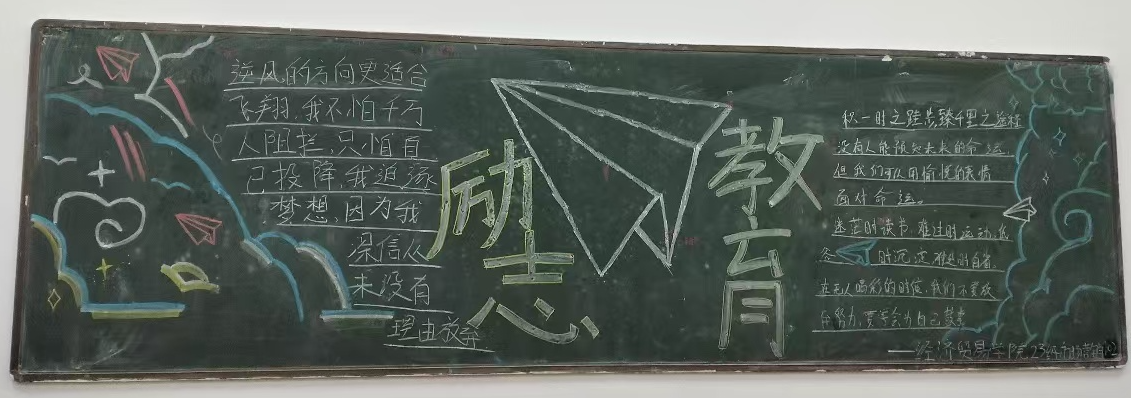 逆风的方向更适合
飞翔,我不怕千万
人阻拦,只怕自
己投降,我追逐
梦想,因为我
深信从
未没有
理由放弃
励志
教育
积一时之跬步臻千里之遥程
没有人能预知未来的命运,
但我们可以用愉悦的表情
面对命运。
迷茫时读书,难过时运动,
时沉淀,得意时自省。
在无人喝彩的时候,我们不要放
弃努力,要学会为自己鼓掌
——经济贸易学院23级市场营销②